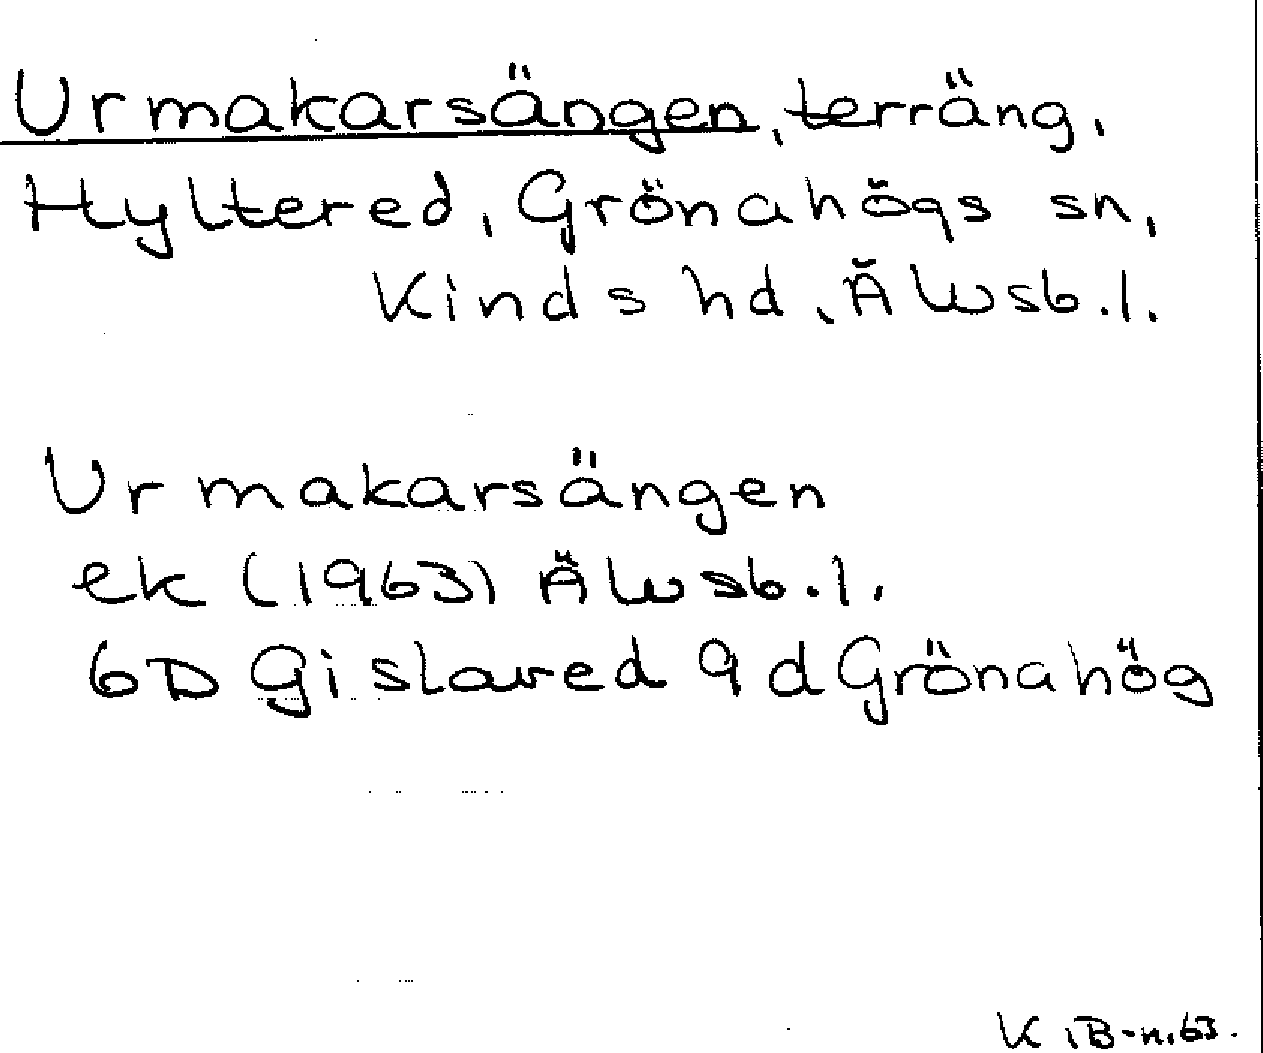 Urmakarsängen, terräng,
Hyltered, Grönahögs sn,
Kinds hd, Älvsb.l.
Urmakarsängen
ek (1963) Älvsb.l.
6D Gislaved 9d Grönahög
K iB-n.63.